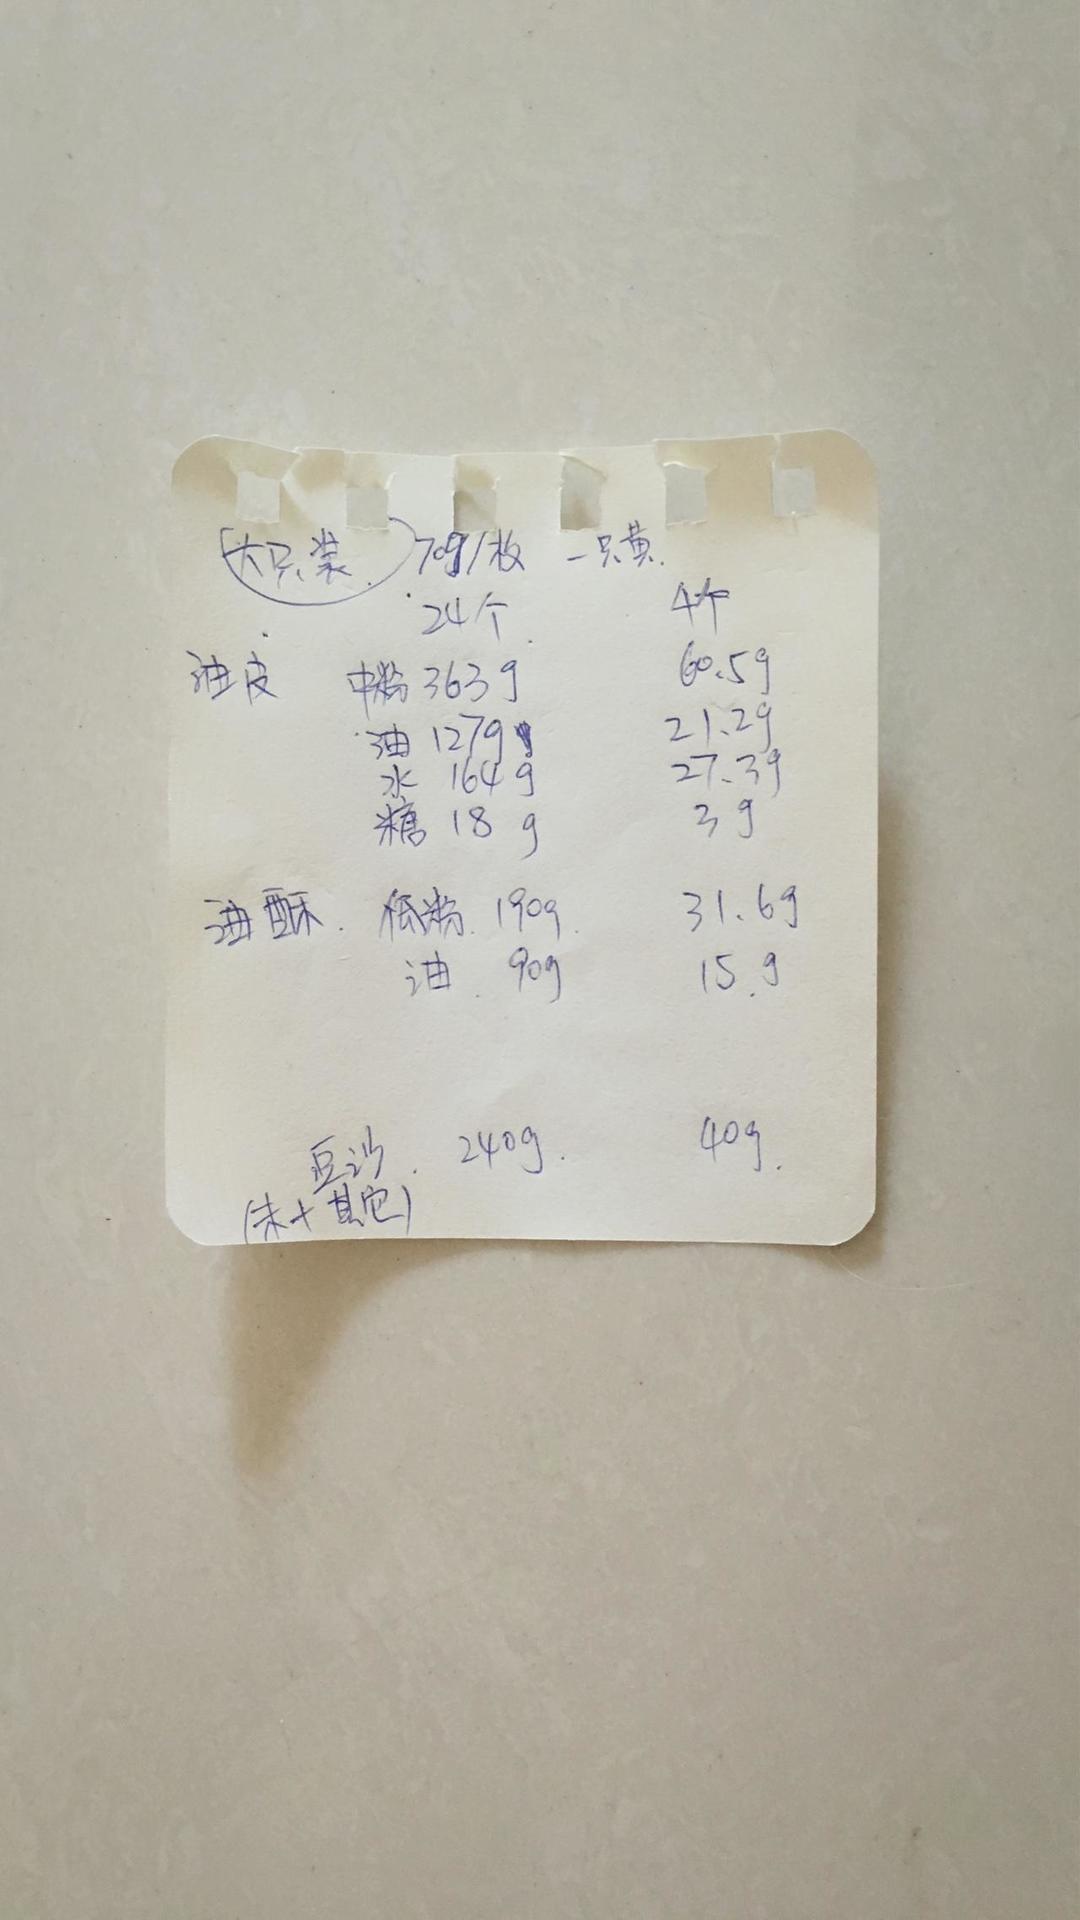 大只装 70g/枚 一只黄.
24个. 4个
油皮 中粉 363g 60.5g
油 127g 21.2g
水 164g 27.3g
糖 18g 3g
油酥. 低粉. 190g. 31.6g
油. 90g 15.g
豆沙. 240g. 40g.
(未+其它)